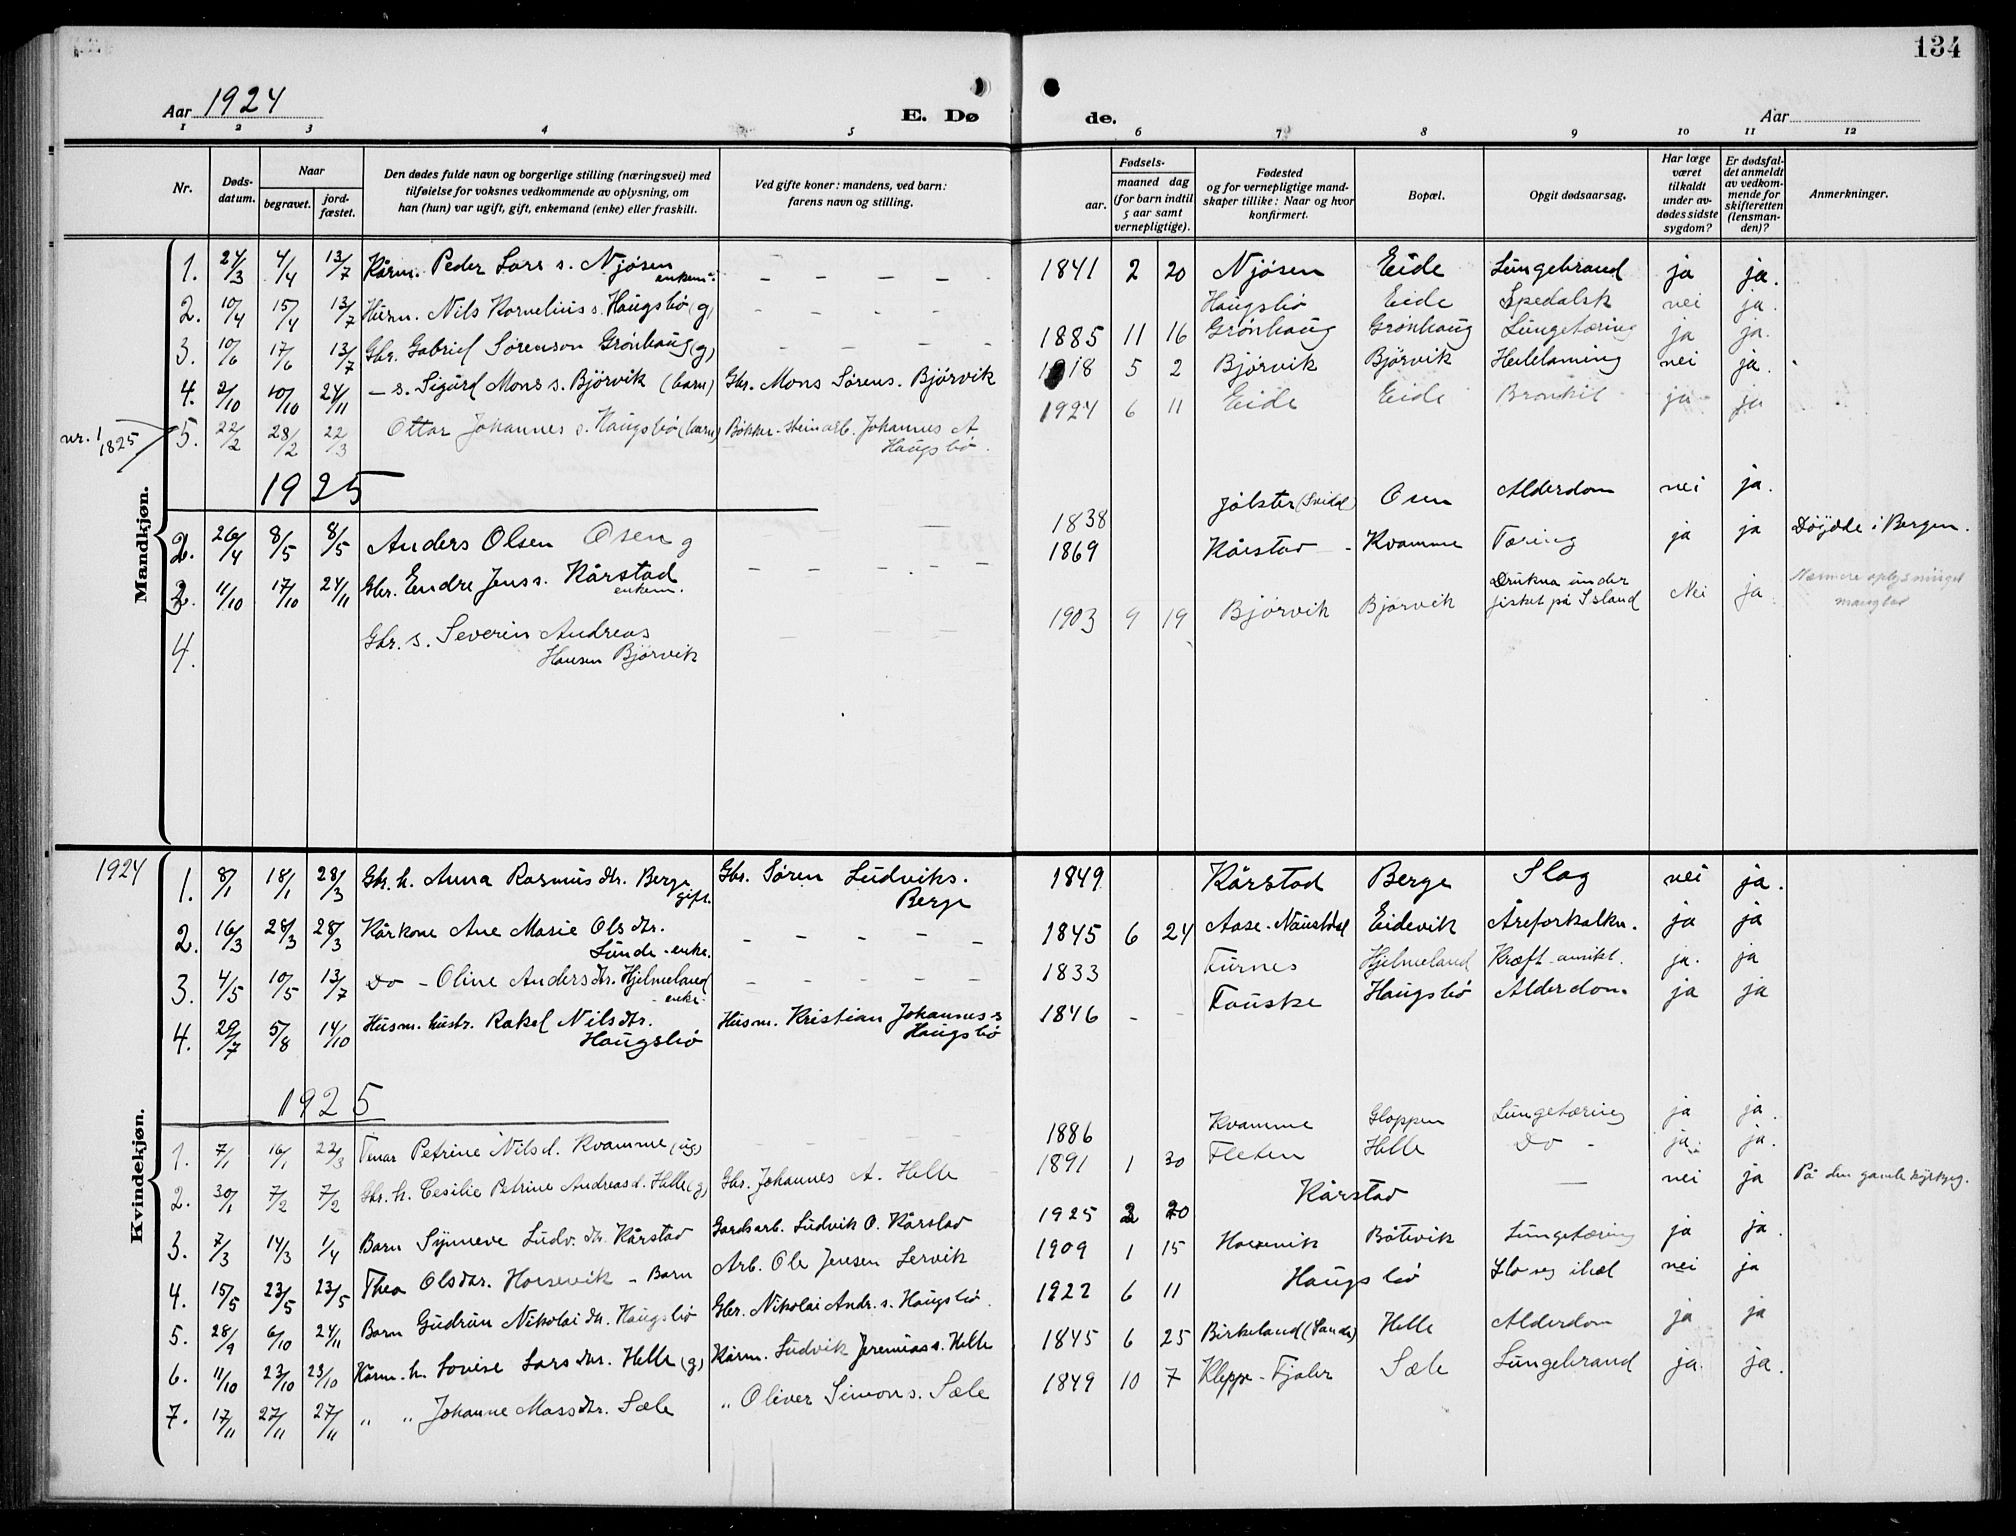 134
Aar 1924
E. Dø
de.
Aar
1 2 3 4 5 6 7 8 9 10 11 12
Nr.
Døds-
datum.
Naar
begravet.
jord-
fæstet.
Den dødes fulde navn og borgerlige stilling (næringsvei) med
tilføielse for voksnes vedkommende av oplysning, om
han (hun) var ugift, gift, enkemand (enke) eller fraskilt.
Ved gifte koner: mandens, ved barn:
farens navn og stilling.
Fødsels-
aar.
maaned dag
(for barn indtil
5 aar samt
vernepligtige).
Fødested
og for vernepligtige mand-
skaper tillike: Naar og hvor
konfirmert.
Bopæl.
Opgit dødsaarsag.
Har læge
været
tilkaldt
under av-
dødes sidste
sygdom?
Er dødsfal-
det anmeldt
av vedkom-
mende for
skifteretten
(lensman-
den)?
Anmerkninger.
Mandkjøn.
1. 24/3 4/4 13/7 Kårm. Peder Lars s. Njøsen enkem. – – – – 1841 2 20 Njøsen Eide Lungebrand ja ja.
2. 10/4 15/4 13/7 Husm. Nils Kornelius s. Haugsbø (g) – – – – Haugsbø Eide Spedalsk nei ja.
3. 10/6 17/6 13/7 Gbr. Gabriel Sørenson Grönhaug (g) – – – – 1885 11 16 Grönhaug Grönhaug Lungetæring ja ja.
4. 2/10 10/10 24/11 – s. Sigurd Mons s. Bjørvik (barn) Gbr. Mons Sørens. Bjørvik 1918 5 2 Bjørvik Bjørvik nei ja.
nr. 1
1825
5. 22/2 28/2 22/3 Ottar Johannes s. Haugsbø (barn) Bøkker-steinarb. Johannes A
Haugsbø. 1924 6 11 Eide Eide Bronkit ja ja
1925
2. 26/4 8/5 8/5 Anders Olsen Osen g 1838 Jølster Osen Alderdom nei ja.
3. 11/10 17/10 24/11 Gbr. Endre Jens s. Kårstad
enkem. – – – – 1869 Kårstad – Kvamme Tæring ja ja Døydde i Bergen.
4. Gbr. s. Severin Andreas
Hansen Bjørvik 1903 9 19 Bjørvik Bjørvik Drukna under
fisket på Island Nei ja Nærmere oplysninger
mangler
Kvindekjøn.
1924
1. 8/1 18/1 28/3 Gbr. h. Anna Rasmus dtr. Berge
gift. Gbr. Sören Ludviks.
Berge 1849 Kårstad Berge Slag nei ja.
2. 16/3 28/3 28/3 Kårkone Ane Marie Ols dtr.
Lunde – enke. – – – – 1845 6 24 Aase – Naustdal Eidevik Åreforkalkn. ja ja
3. 4/5 10/5 13/7 Do – Oline Anders dtr. Hjelmeland
– enke – – – – – 1833 Furnes Hjelmeland Kræft ja. ja
4. 29/7 5/8 14/10 Husm. hustr. Rakel Nils dtr.
Haugsbø Husm. Kristian Johannes s
Haugsbø 1846 – – Fauske Haugsbø Alderdom ja ja
1925
1. 7/1 16/1 22/3 Petrine Nils d. Kvamme (ug) – – – 1886 Kvamme Gloppen Lungetæring ja ja.
2. 30/1 7/2 7/2 Gbr. h. Cesilie Petrine Andreas d. Helle (g) Gbr. Johannes A. Helle 1891 1 30 Fleten Helle Do – ja. ja.
3. 7/3 14/3 1/4 Barn Synneve Ludv. dtr. Kårstad Gardsarb. Ludvik O. Kårstad 1925 2 20 Kårstad — nei ja På den gamle
4. 15/5 23/5 23/5 Thea Ols dtr. Horsevik – Barn Arb. Ole Jensen Lervik 1909 1 15 Horsevik Båtevik Lungetæring ja ja.
5. 28/9 6/10 24/11 Barn Gudrun Nikolai dtr. Haugsbø Gbr. Nikolai Andr. s. Haugsbø. 1922 6 11 Haugsbø Slo seg ihel nei ja
6. 11/10 23/10 23/10 Kårm. h. Lovise Lars dtr. Helle (g) Kårm. Ludvik Jeremias s. Helle 1845 6 25 Birkeland (Sande) Helle Alderdom ja ja
7. 17/11 27/11 27/11 „ „ Johanne Mass dtr. Sæle „ Oliver Simon s. Sæle 1849 10 7 Kleppe – Fjaler Sæle Lungebrand ja. ja.